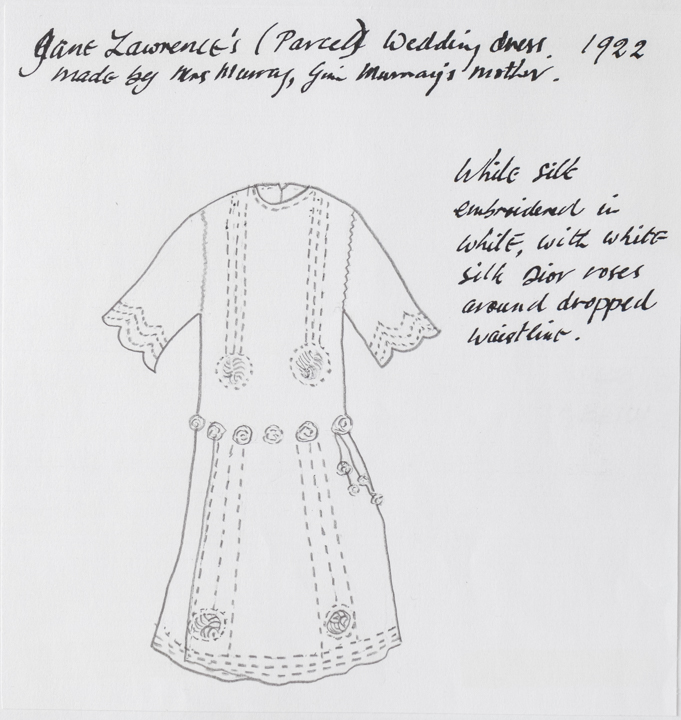 Jane Lawrence's (Parcell) Wedding dress. 1922
made by Mrs Murray, Gini Murray's mother.
White silk
embroidered in
white, with white
silk Dior roses
around dropped
waistline.